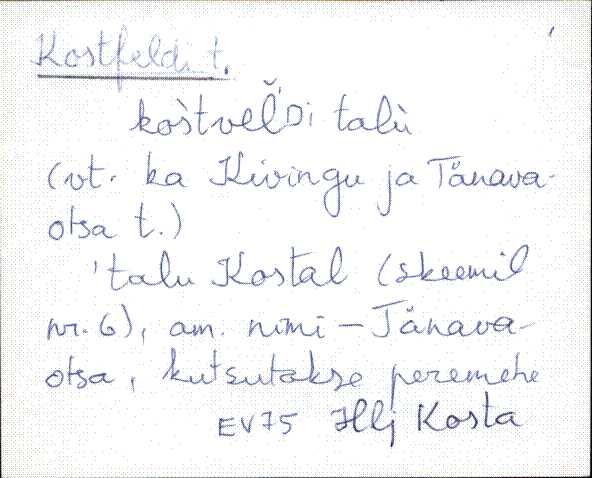 Kostfeldi t.
kòstvel̆'Di talù
(vt. ka Kivingu ja Tänava-
otsa t.)
'talu Kostal (skeemil
nr. 6), am. nimi – Tänava-
otsa, kutsutakse peremehe
EV75 Illj Kosta